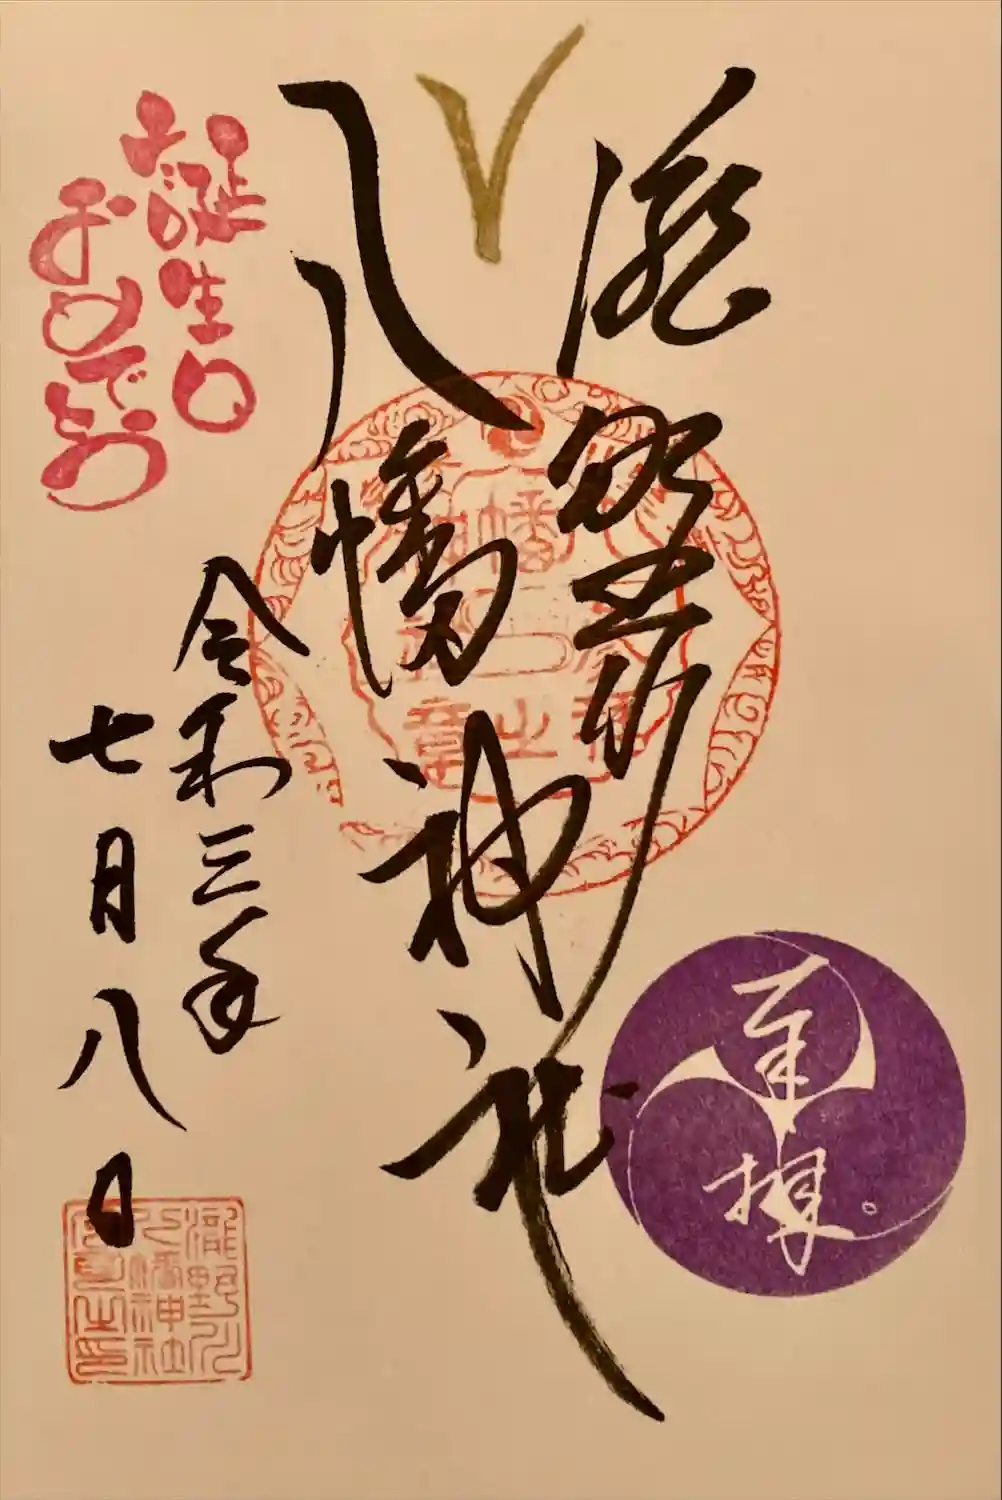 瀧野川
八幡神社
令和三年
七月八日
お誕生日
おめでとう
瀧野川
八幡神社